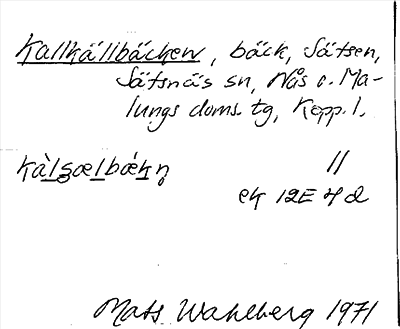 Kallkällbäcken, bäck, Sätsen,
Sätsnäs sn, Nås o. Ma-
lungs doms. tg, Kopp. l.
//
ek 12E 4d
Mats Wahlberg 1971